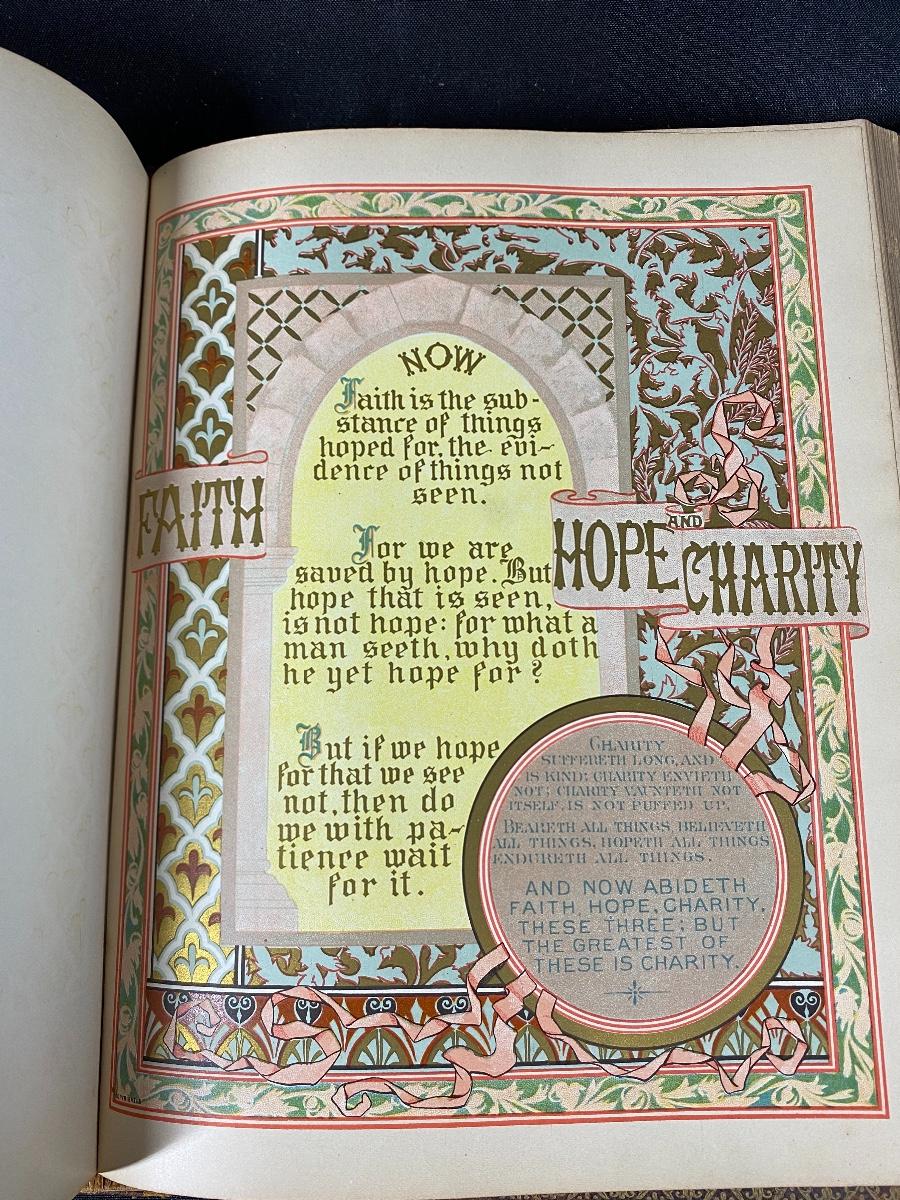 NOW
Faith is the sub-
stance of things
hoped for, the evi-
dence of things not
seen.
FAITH
HOPE AND CHARITY
For we are
saved by hope. But
hope that is seen,
is not hope: for what a
man seeth, why doth
he yet hope for?
But if we hope
for that we see
not, then do
we with pa-
tience wait
for it.
CHARITY
SUFFERETH LONG, AND
IS KIND; CHARITY ENVIETH
NOT; CHARITY VAUNTETH NOT
ITSELF, IS NOT PUFFED UP,
BEARETH ALL THINGS, BELIEVETH
ALL THINGS, HOPETH ALL THINGS
ENDURETH ALL THINGS.
AND NOW ABIDETH
FAITH, HOPE, CHARITY,
THESE THREE; BUT
THE GREATEST OF
THESE IS CHARITY.